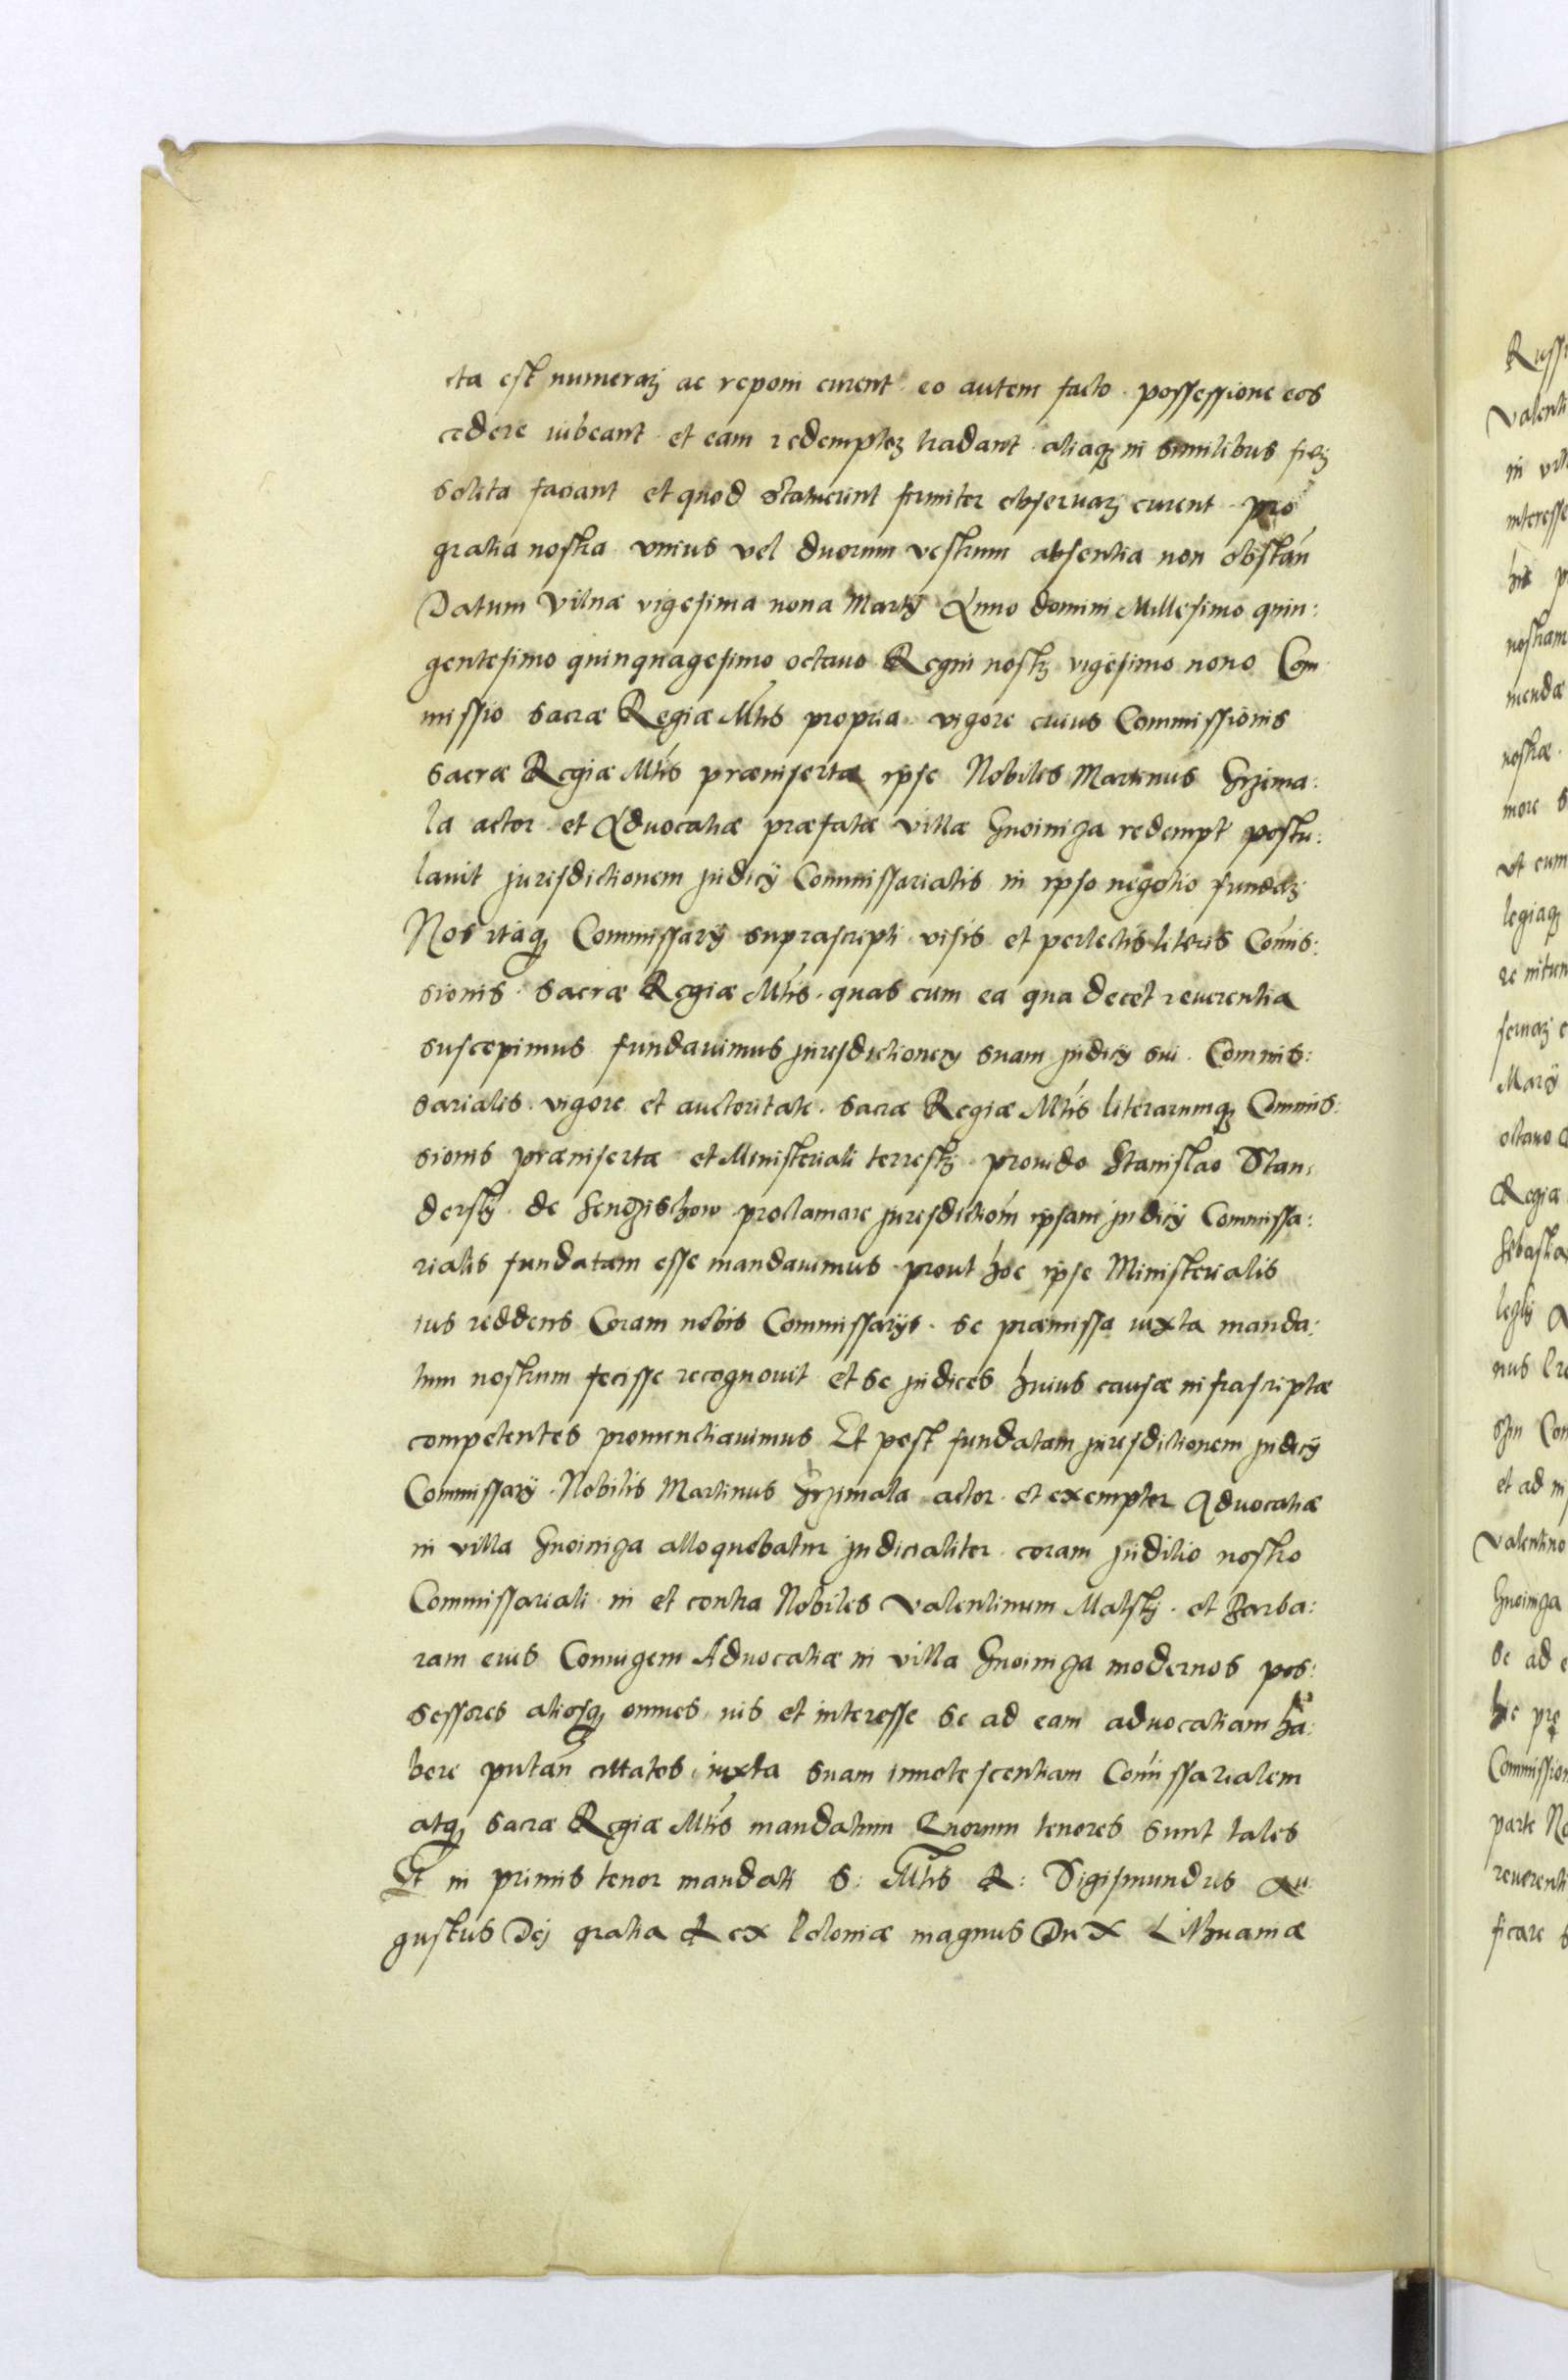 cta est numeraꝫ ac reponi curent eo autem facto possessione eos
cedere iubeant et eam redemptoꝫ tradant aliaqꝫ in similibus fieꝫ
solita faciant et quod statuerint firmiter obseruaꝫ curent pro
gratia nostra vnius vel duorum vestrum absentia non obstań
Datum Vilnæ vigesima nona Martij Anno domini Millesimo quin:
gentesimo quinquagesimo octauo Regni nostꝫ vigesimo nono Com
missio sacræ Regiæ Mtis propria vigore cuius Commissionis
sacræ Regiæ Mtis præinsertæ ipse Nobiles Martinus Grzima:
la actor et Aduocatiæ præfatæ villæ Gnoiniga redempt postu:
lauit jurisdictionem judicij Commissarialis in ipso negotio fundaꝫ
Nos itaqꝫ Commissarij suprascripti visis et perlectis literis Comis:
sionis sacræ Regiæ Mtis quas cum ea qua decet reuerentia
suscepimus fundauimus jurisdictionem suam judicij sui Commis:
sarialis vigore et auctoritate sacræ Regiæ Mtis literarumqꝫ Commis:
sionis præinsertæ et Ministeriali terrestꝫ prouido Stanislao Stan:
dersky de proclamare jurisdictiom ipsam judicij Commissa:
rialis fundatam esse mandauimus prout hoc ipse Ministerialis
ius reddens Coram nobis Commissarijs se præmissa iuxta manda:
tum nostrum fecisse recognouit et se judices huius causæ infrascriptæ
competentes pronunctiauimus Et post fundatam jurisdictionem judicij
Commissarij Nobilis Martinus Grzimala actor et exempter Aduocatiæ
in villa Gnoiniga alloquebatur judicialiter coram juditio nostro
Commissariali in et contra Nobiles Valentinum Malsky et Barba:
ram eius Coniugem Aduocatiæ in villa Gnoiniga modernos pos:
sessores aliosqꝫ omnes ius et interesse se ad eam aduocatiam ha:
bere putań cittatos iuxta suam innotescentiam Comissarialem
atqꝫ sacræ Regiæ Mtis mandatum Quorum tenores sunt tales
Et in primis tenor mandati S: Mtis R: Sigismundus Au:
gustus Dej gratia Rex Poloniæ magnus Dux Lithuaniæ